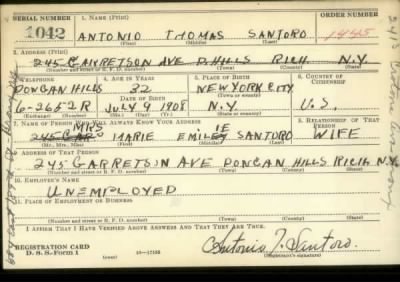 SERIAL NUMBER 1. NAME (Print) ORDER NUMBER
1042 ANTONIO THOMAS SANTORO 1445
(First) (Middle) (Last)
2. ADDRESS (Print)
245 GARRETSON AVE D. HILLS RICH. N.Y.
(Number and street or R. F. D. number) (Town) (County) (State)
3. TELEPHONE 4. AGE IN YEARS 5. PLACE OF BIRTH 6. COUNTRY OF CITIZENSHIP
DONGAN HILLS 32 NEW YORK CITY
DATE OF BIRTH (Town or county)
6-2652R JULY 9 1908 N.Y. U.S.
(Exchange) (Number) (Mo.) (Day) (Yr.) (State or country)
7. NAME OF PERSON WHO WILL ALWAYS KNOW YOUR ADDRESS 8. RELATIONSHIP OF THAT PERSON
MRS MARIE EMILIE SANTORO WIFE
(Mr., Mrs., Miss) (First) (Middle) (Last)
9. ADDRESS OF THAT PERSON
245 GARRETSON AVE DONGAN HILLS RICH. N.Y.
(Number and street or R. F. D. number) (Town) (County) (State)
10. EMPLOYER'S NAME
UNEMPLOYED
11. PLACE OF EMPLOYMENT OR BUSINESS
(Number and street or R. F. D. number) (Town) (County) (State)
I AFFIRM THAT I HAVE VERIFIED ABOVE ANSWERS AND THAT THEY ARE TRUE.
REGISTRATION CARD
D. S. S. Form 1
Antonio T. Santoro
(Registrant's signature)